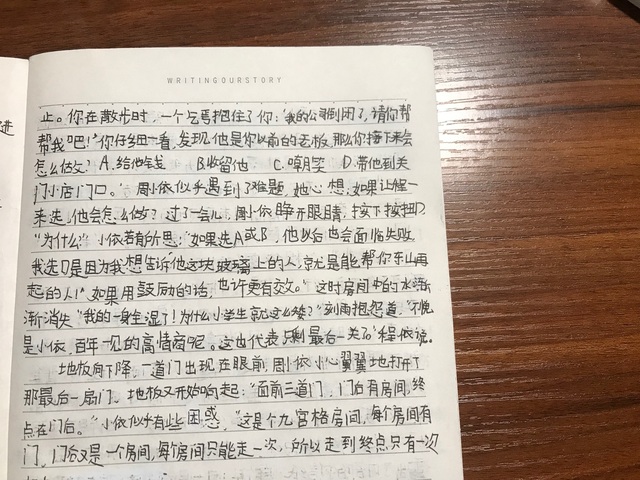 WRITINGOURSTORY
止。你在散步时，一个乞丐把住了你："我的公司倒闭了，请你帮
帮我吧！"你仔细一看，发现他是你以前的老板，那么你接下来会
怎么做？A.给他钱 B.收留他 C.嘲笑 D.带他到关
门小店门口。"周小依似乎遇到了难题，她心想：如果让解一
来选，他会怎么做？过了一会儿，周小依睁开眼睛，按下按扭D.
"为什么？"小依若有所思："如果选A或B，他以后也会面临失败
我选D是因为我想告诉他这块玻璃上的人，就是能帮你东山再
起的人！"如果用鼓励的话，也许更有效。"这时房间中的水渐
渐消失"我的一身全湿了！为什么小学生就这么矮？"刘雨抱怨道，"不愧
是小依，百年一见的高情商呢。这也代表只剩最后一关了"程依说。
地板向下降，一道门出现在眼前，周小依小心翼翼地打开了
那最后一扇门。地板又开始响起："面前三道门，门后有房间，终
点在门后。"小依似乎有些困惑，"这是个九宫格房间，每个房间有
门，门后又是一个房间，每个房间只能走一次，所以走到终点只有一次
进